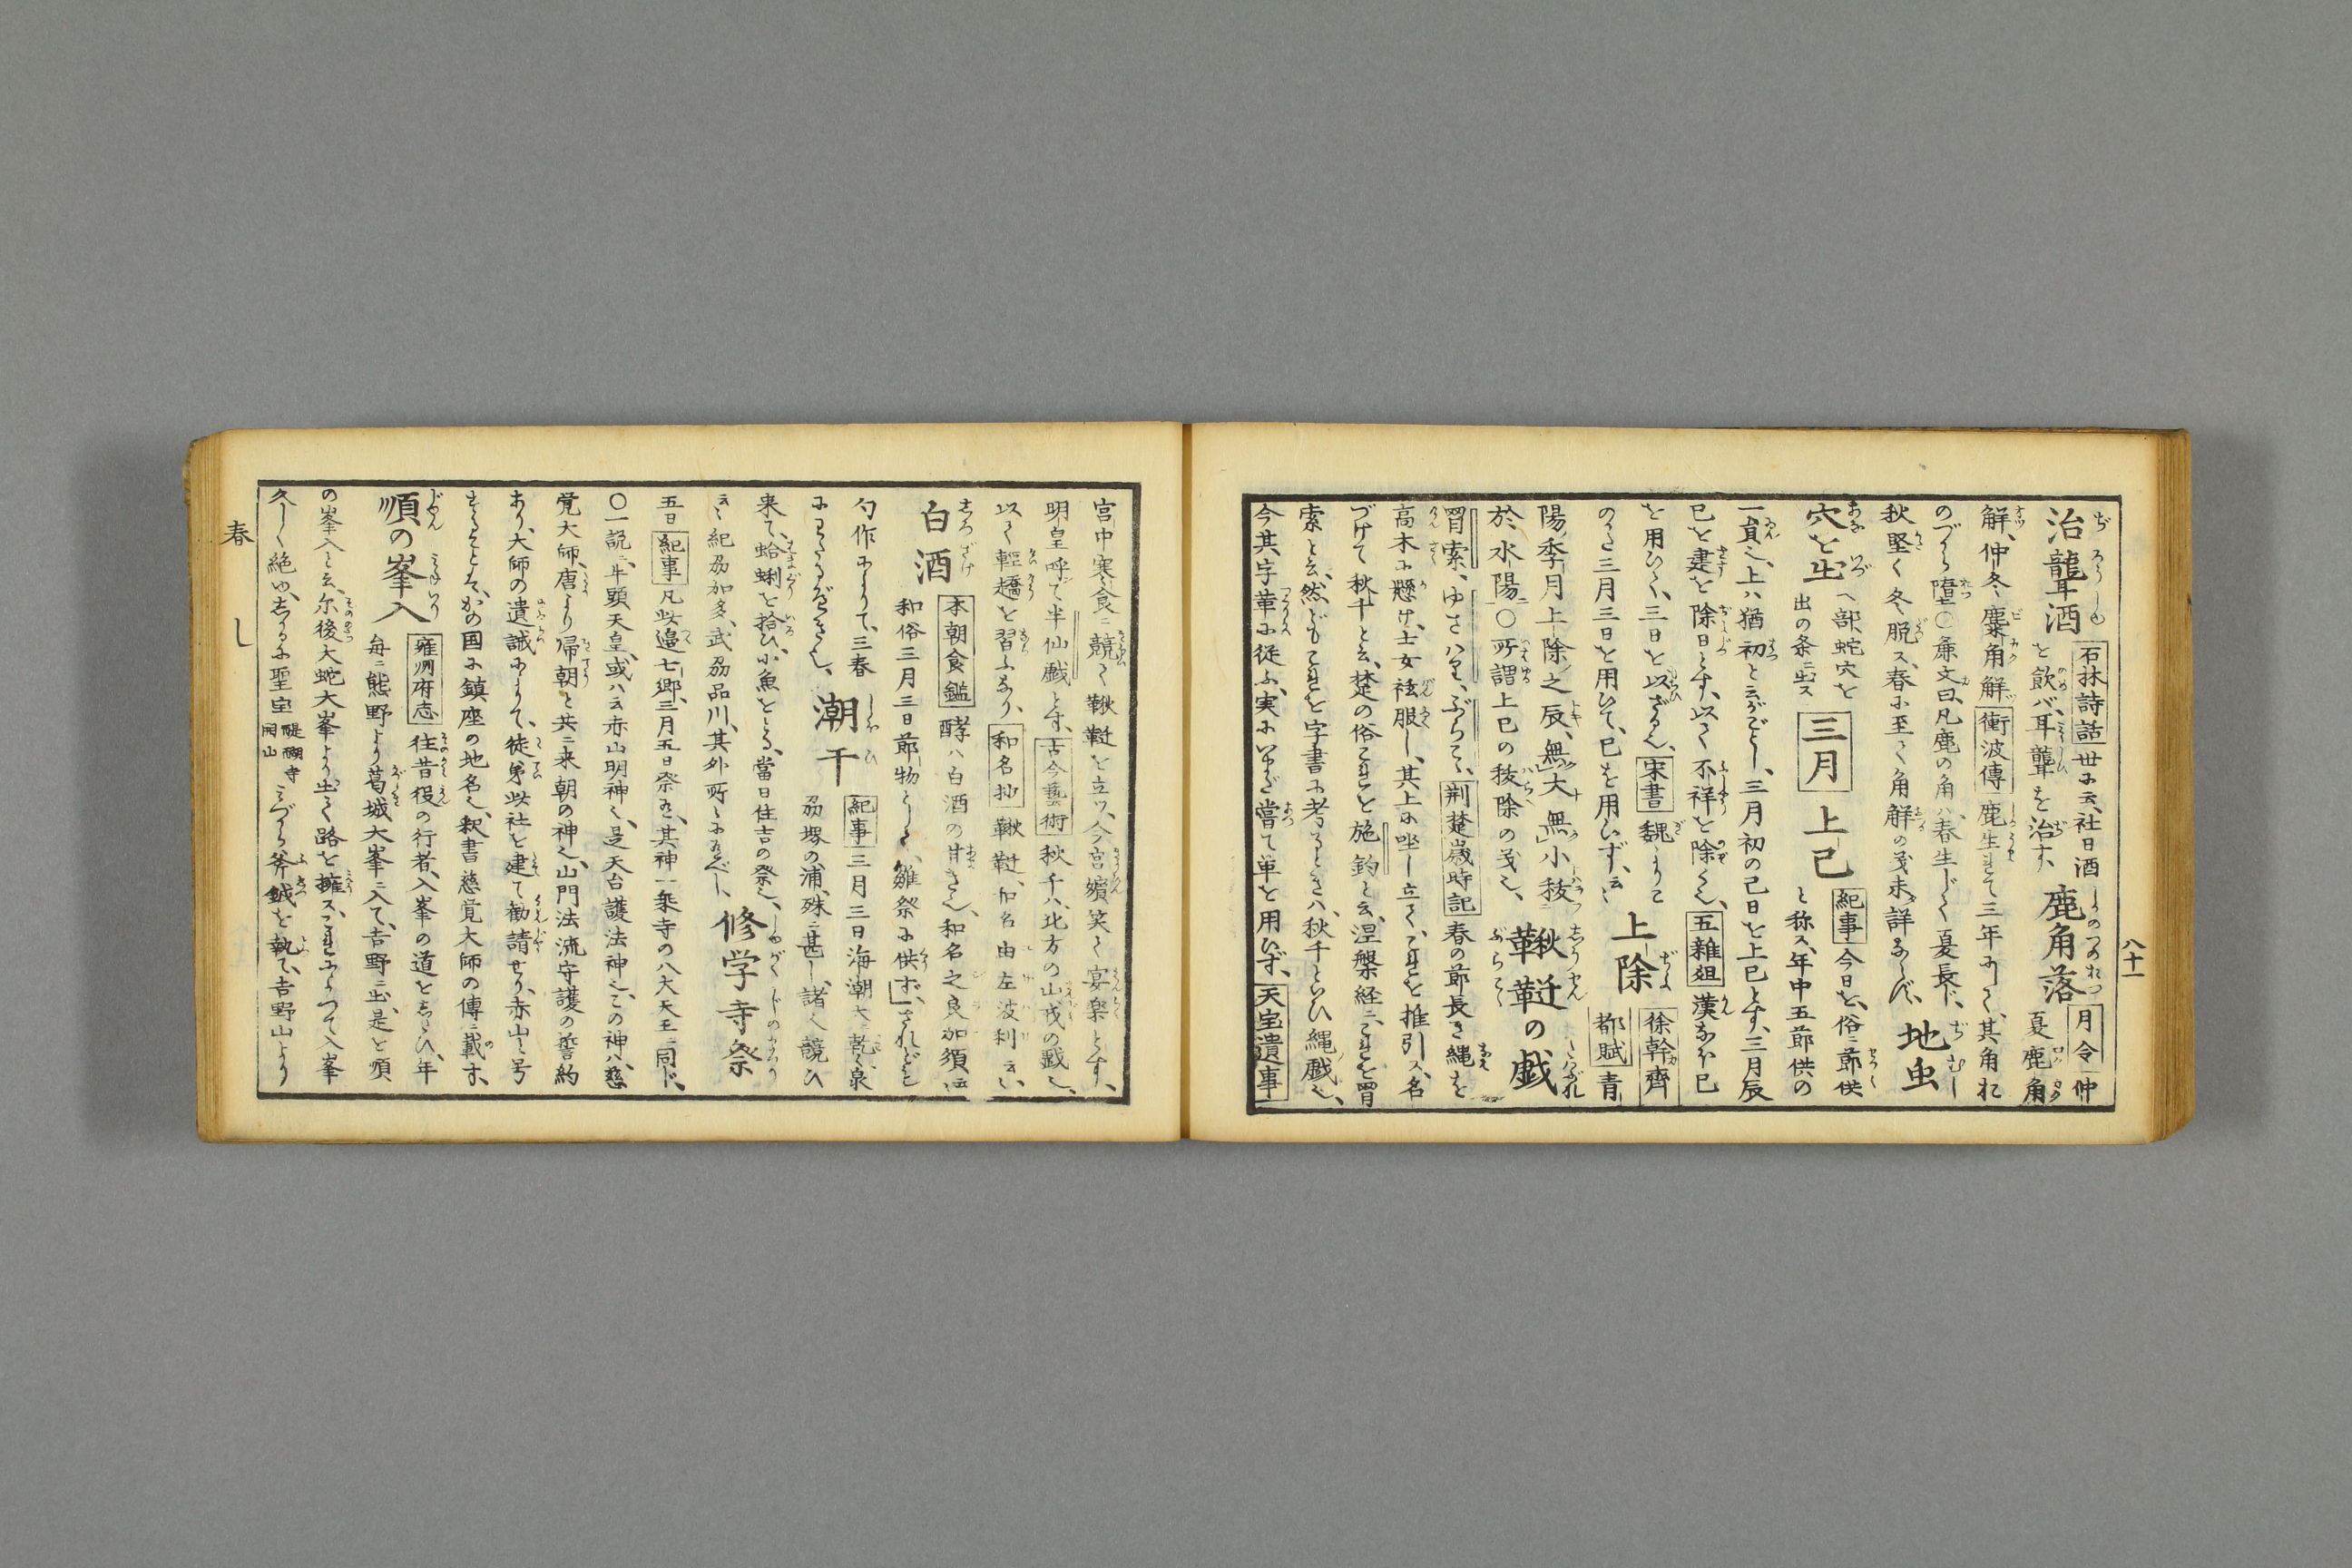 八十一
治聾酒
石林詩話 世に云、社日酒
を飲バ、耳聾を治す、
鹿角落
月令 仲
夏鹿角
解、仲冬麋角解 衝波傳 鹿生れて三年にして、其角おのづから堕
〇庶文曰、凡鹿の角ハ、春生じて夏長ド、
秋堅く冬脱ス、春に至て角解の義未詳ならバ、
地虫
穴を出
ヘ部蛇穴を
出の条ニ出ス
三月
上巳
紀事 今日を、俗ニ節供
と称ス、年中五節供の
一員也、上ハ猶初と云がごとし、三月初の巳日を上巳とす、三月辰
巳を建を除日とす、以て不祥を除く也、 五雑爼 漢なほ巳
を用ひて、三日を以ざる也、 宋書 魏より
のち三月三日を用ひて、巳を用いず、云々
上除
徐幹齊
都賦 青
陽季月上除之辰、無大無小祓
於水陽〇所謂上巳の祓除の義也、
鞦韆の戯
罥索、ゆさハり、ぶらここ、 荊楚歳時記 春の節長き縄を
高木に懸け、士女袨服し、其上に坐し立て、これを推引ス、名
づけて秋千と云、楚の俗これを施鉤と云、涅槃経ニこれを罥
索と云、然どもこれを字書に考るときハ、秋千といひ縄戯也、
今其字革に従ふ、実にいまだ嘗て単を用ひず、 天宝遺事
宮中寒食ニ競て鞦韆を立ツ、今宮嬪笑て宴楽とす、
明皇呼で半仙戯とす、 古今藝術 秋千ハ、北方の山戎の戯也、
以て輕趫を習ふなり、 和名抄 鞦韆、和名由左波利 云々、
白酒
本朝食鑑 酵ハ白酒の甘き也、和名之良加須
和俗三月三日節物として、雛祭に供ず、されども
勺作によりて、三春
にわたるがごとき也、
潮干
紀事 三月三日海潮大ニ乾く、泉
刕堺の浦、殊ニ甚し、諸人競ひ
来て、蛤蜊を拾ひ、小魚をとる、當日住吉の祭也、
云々 紀刕加多、武刕品川、其外所々に
修学寺祭
五日 紀事 凡此邉七郷三月五日祭礼、其神一乗寺の八大天王ニ同ド、
〇一説ニ牛頭天皇、或ハ云赤山明神也、是天台護法神也、この神ハ、慈
覚大師、唐より帰朝と共ニ来朝の神也、山門法流守護の誓約
あり、大師の遺誡によりて、徒弟此社を建て勧請せり、赤山と号
することは、かの国に鎮座の地名也、釈書慈覚大師の傳ニ載す、
順の峯入
雍州府志 往昔役の行者、入峯の道をしたひ、年
毎ニ熊野より葛城大峯ニ入て、吉野ニ出、是を順
の峯入と云、尓後大蛇大峯より出て路を擁ス、これによつて入峯
久しく絶ゆ、しかるに聖宝 醍醐寺
開山 みづから斧鉞を執て、吉野山より
春
し